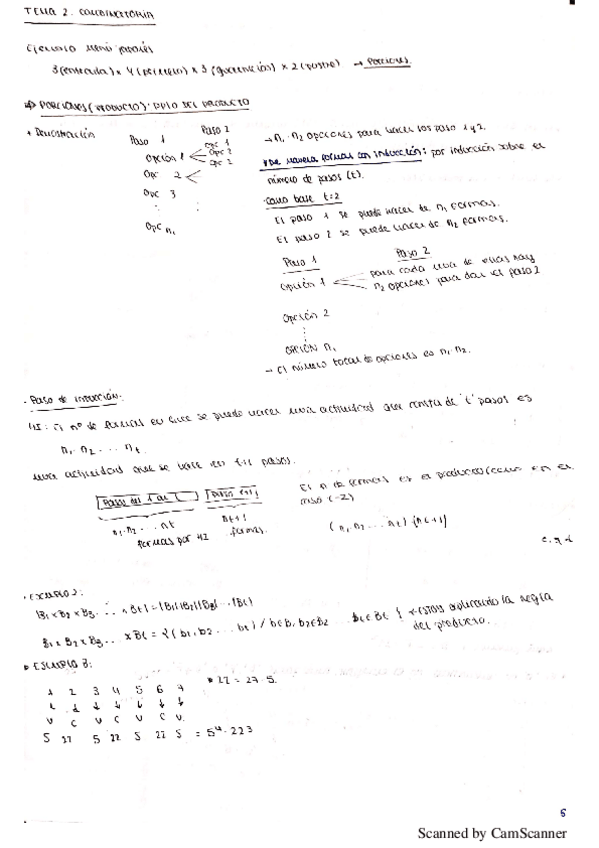 TEMA 2. COMBINATORIA
Ejemplo menú japonés
3 (entrada) x 4 (personas) x 3 (guarnición) x 2 (postre) → opciones.
(PRODUCTO): REGLA DEL PRODUCTO
+ Demostración
Paso 1 Paso 2
Opción 1 Opc 1
Opc 2
Opc 2
Opc 2
Opc 3
Opc n1
→ n1 · n2 opciones para hacer los paso 1 y 2.
De manera formal con inducción: por inducción sobre el
número de pasos (t).
· caso base t=2
El paso 1 se puede hacer de n1 formas.
El paso 2 se puede hacer de n2 formas.
Paso 1 Paso 2
Opción 1 para cada una de ellas hay
n2 opciones para dar el paso 2
Opción 2
OPCIÓN n1
→ El número total de opciones es n1 n2.
· Paso de inducción:
HI: El nº de formas en que se puede hacer una actividad que consta de 't' pasos es
n1 · n2 ... nt.
una actividad que se hace en t+1 pasos.
Pasos del 1 al t Paso t+1
n1 · n2 ... nt nt+1
formas por HI formas.
El n de formas es el producto (como en el
caso t=2)
(n1 n2 ... nt) (nt+1)
c.q.d
· EJEMPLO 2:
|B1 x B2 x B3 ... x Bt| = |B1| |B2| |B3| ... |Bt|
B1 x B2 x B3 ... x Bt = { (b1, b2 ... bt) / b1∈B1, b2∈B2 ... bt∈Bt } ← Estoy aplicando la regla
del producto.
EJEMPLO 3:
1 2 3 4 5 6 7
↓ ↓ ↓ ↓ ↓ ↓ ↓
V C V C V C V.
5 22 5 22 5 22 5 = 5⁴ · 22³
22 = 27 - 5.
5
Scanned by CamScanner